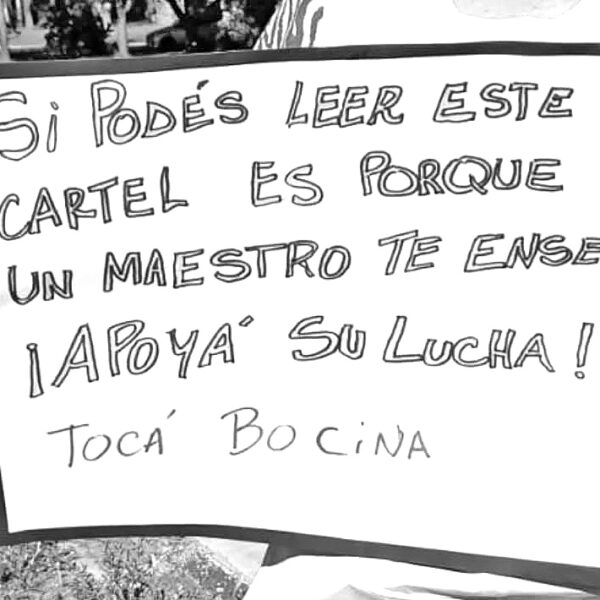 SI PODÉS LEER ESTE
CARTEL ES PORQUE
UN MAESTRO TE ENSE
¡APOYÁ SU LUCHA!
TOCÁ BOCINA